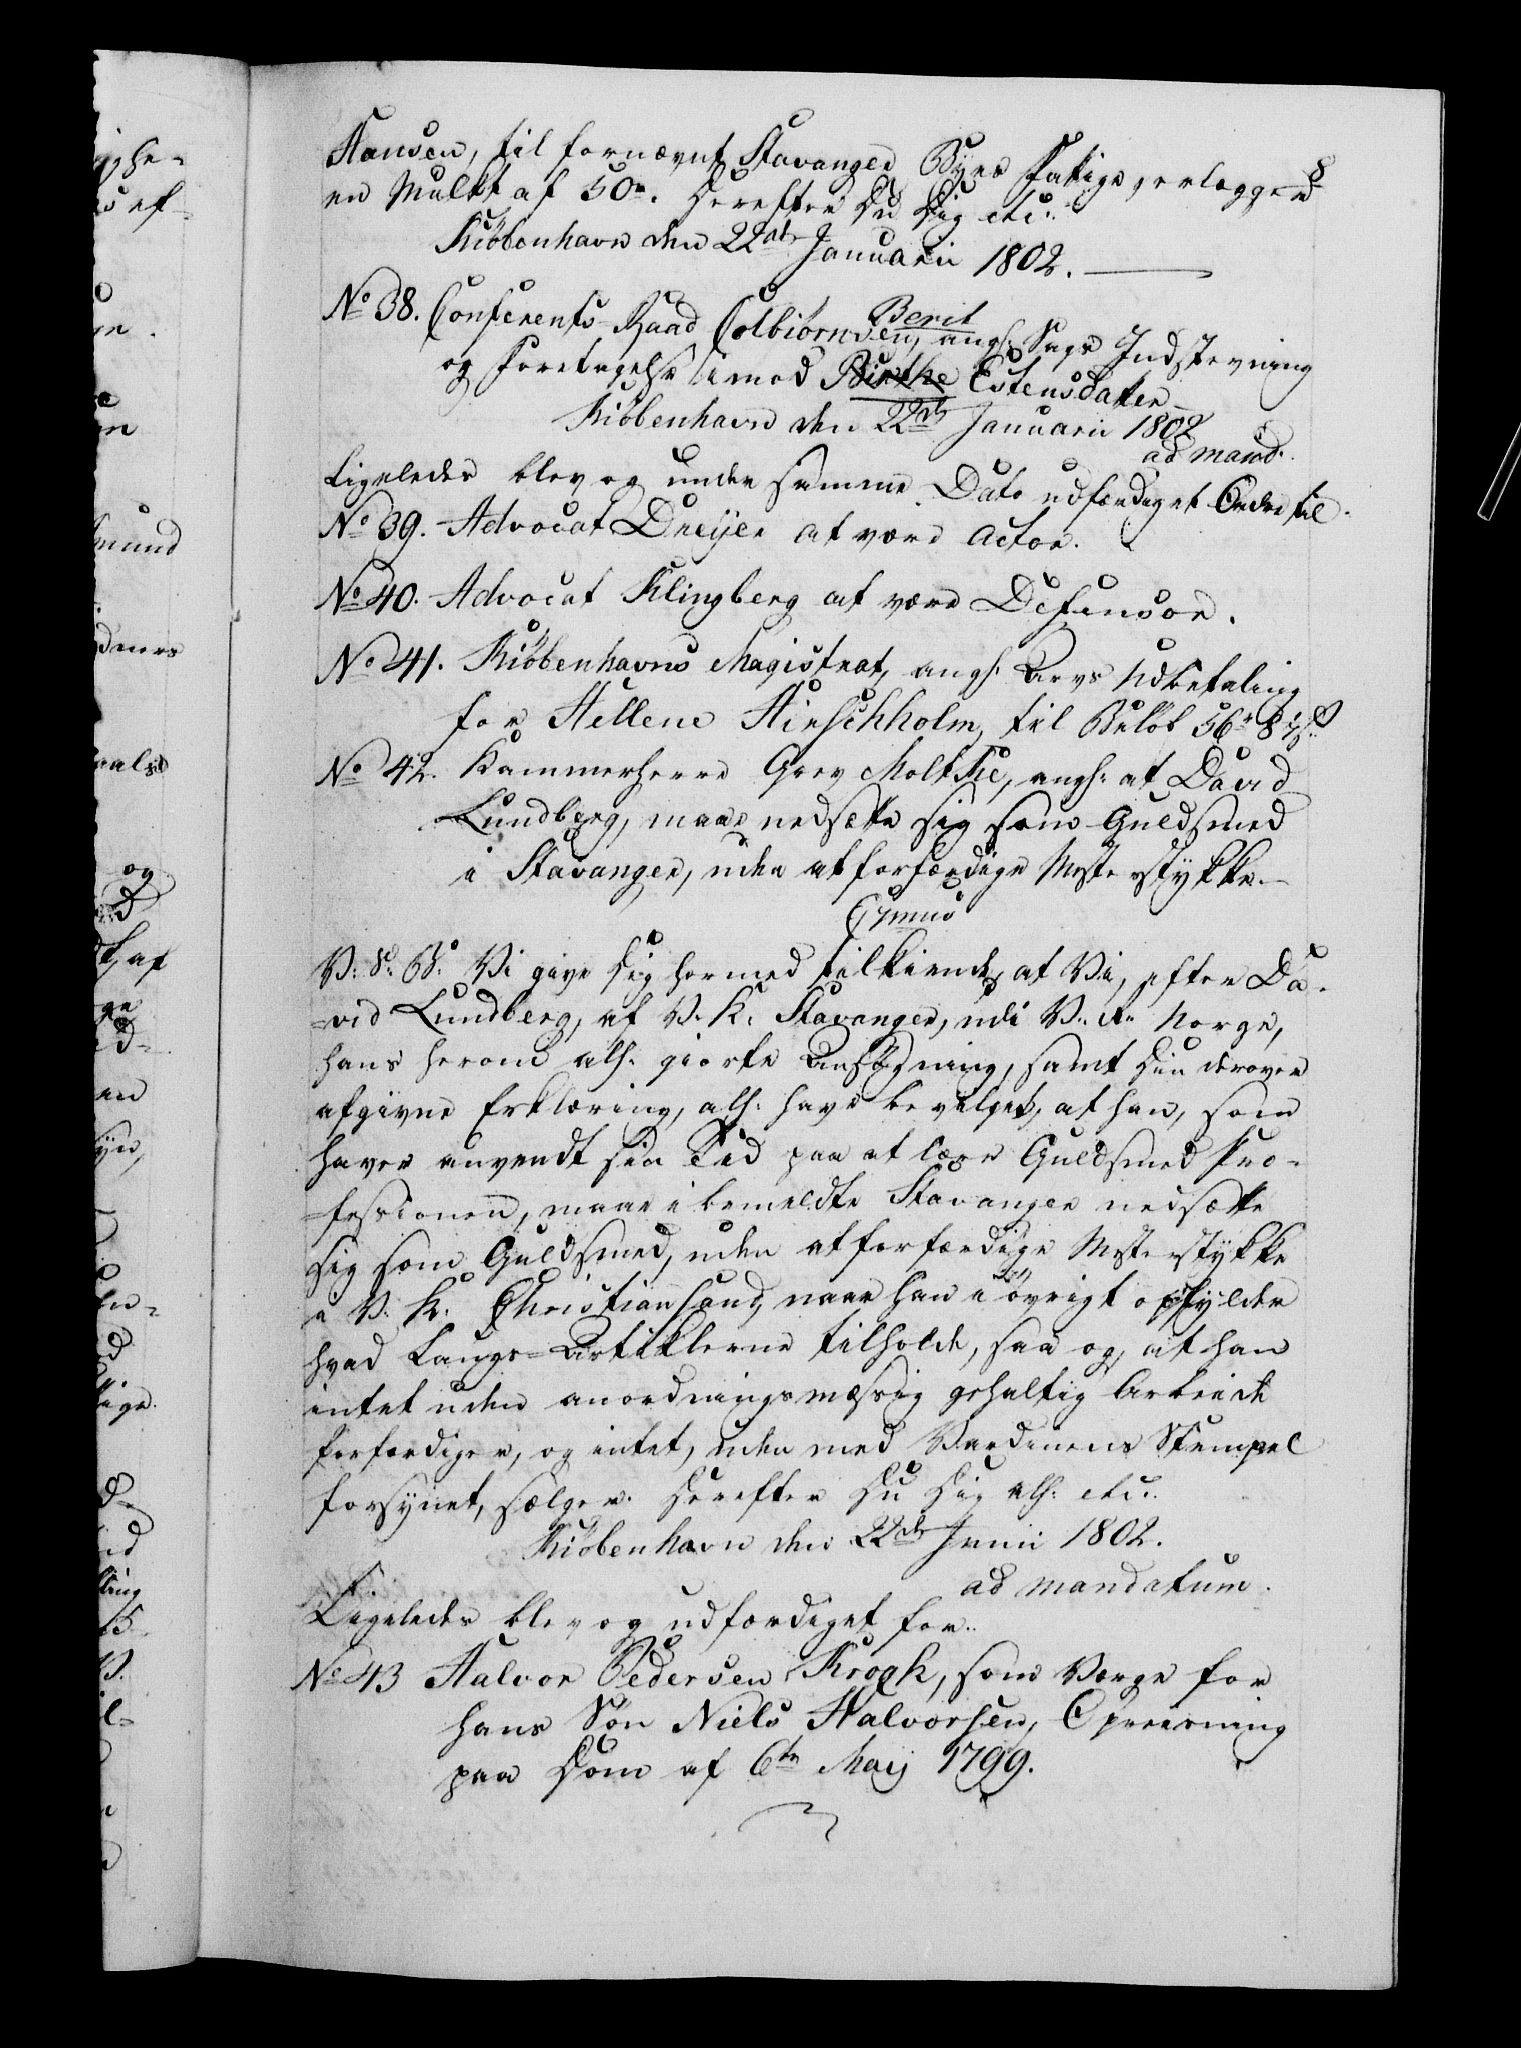 Hansen, til fornævnt Stavanger Byes Fattige, erlægger
en Mulkt af 50 rd. Derefter Du Dig etc.
Kiöbenhavn den 22de Januarii 1802.
No 38. Conferents-Raad Colbiörnsen, angl: Sags Indstevning
Berit
og Foretagelse imod Birthe Estensdatter
Kiöbenhavn den 22de Januarii 1802
ad mand.
Ligeledes blev og under samme Dato udfærdiget Ordre til.
No 39. Advocat Dreijer at være Actor.
No 40. Advocat Klingberg at være Defensor.
No 41. Kiöbenhavns Magistrat, angl: Arvs Udbetaling
for Hellene Hirschholm, til Belöb 56 rd 8 s.
No 42. Kammerherre Grev Moltke, angl: at David
Lundberg, maae nedsætte sig som Guldsmed
i Stavanger, uden at forfærdige Mesterstykke.
C7mus
V: S: G: Vi give Dig hermed tilkiende, at Vi, efter Da-
-vid Lundberg, af V. K. Stavanger, udi V. R. Norge,
hans herom alh: giorte Ansögning, samt Din derover
afgivne Erklæring, alh: have bevilget, at han, som
haver anvendt sin Tid paa at lære Guldsmed Pro-
-fessionen, maae i bemeldte Stavanger nedsætte
sig som Guldsmed, uden at forfærdige Mesterstykke
i V. K. Christiansand, naar han i övrigt opfylder
hvad Laugs-Artiklerne tilholde, saa og, at han
intet uden anordningsmæssig gehaltig Arbeide
forfærdiger, og intet, uden med Vardinens Stempel
forsynet, sælger. Derefter Du Dig alh: etc.
Kiöbenhavn den 22de Janii 1802.
ad mandatum.
Ligeledes blev og udfærdiget for..
No 43 Halvor Pedersen Krogh, som Værge for
hans Sön Niels Halvorsen, Opreisning
paa Dom af 6te Maij 1799.